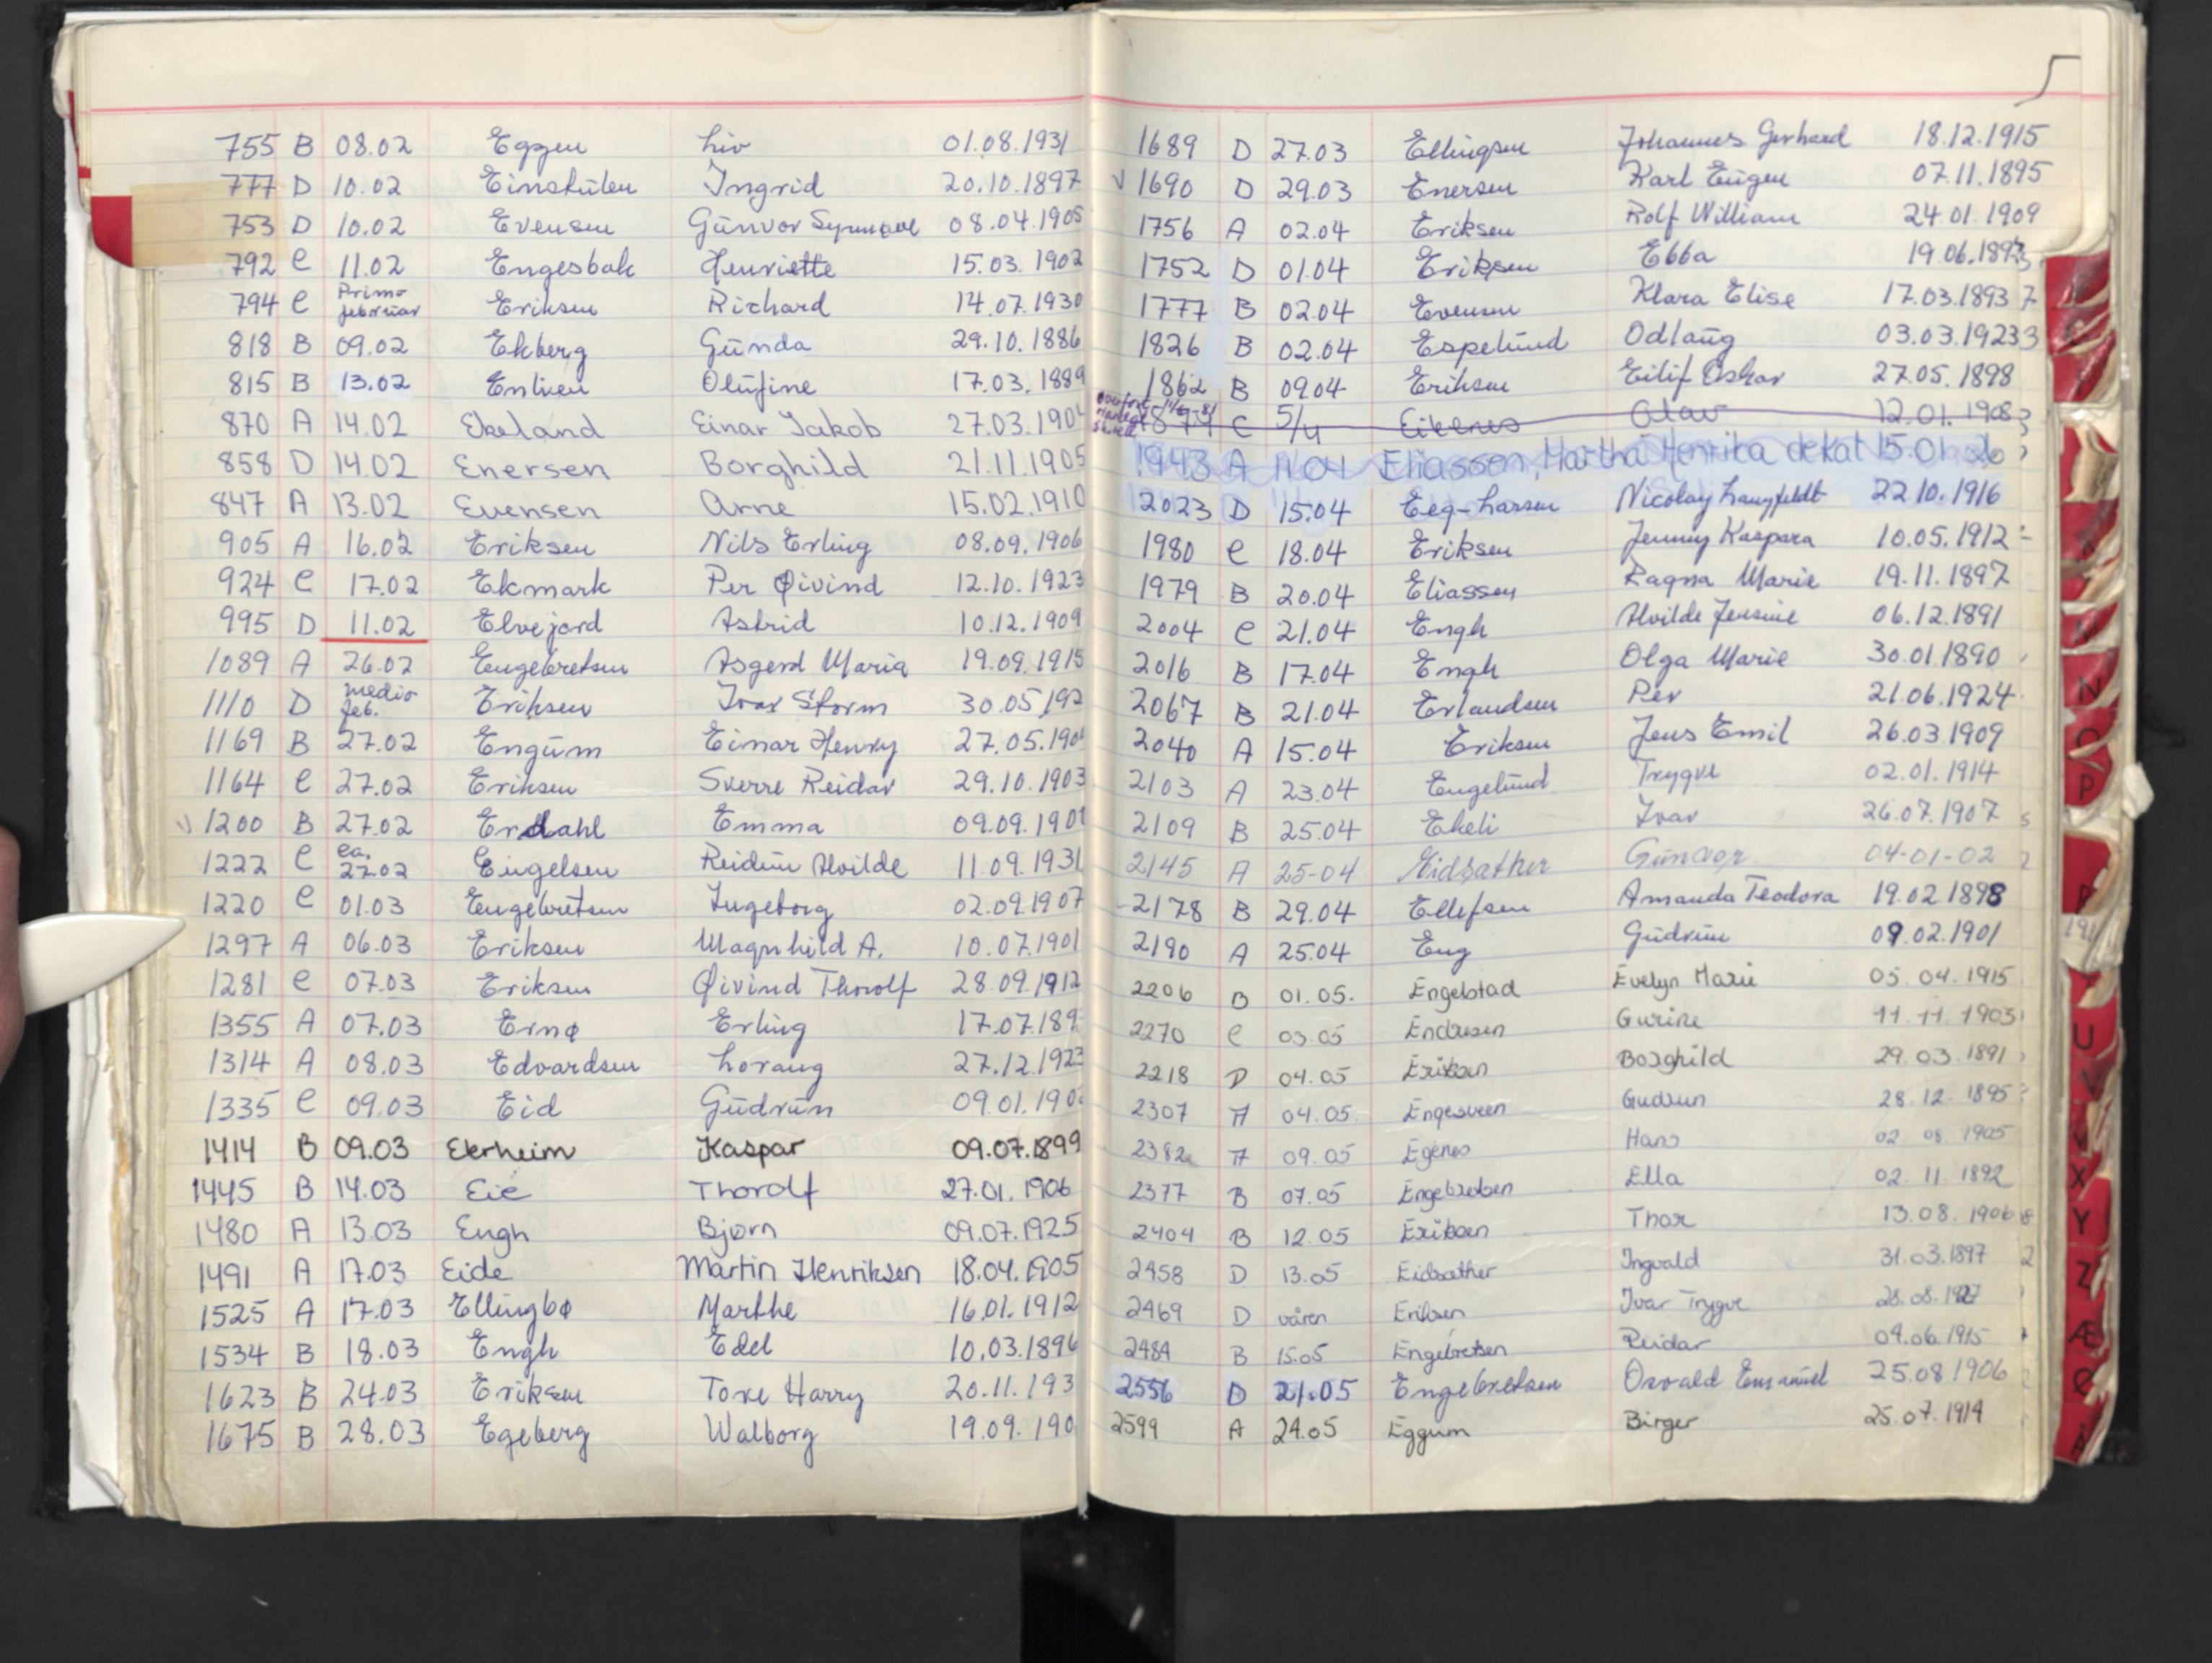 755 B 08.02 Eggen Liv 01.08.1931
777 D 10.02 Einstulen Ingrid 20.10.1897
753 D 10.02 Evensen Gunvor 08.04.1905
792 C 11.02 Engesbak Henriette 15.03.1902
794 C Primo februar Eriksen Richard 14.07.1930
818 B 09.02 Ekberg Gunda 29.10.1886
815 B 13.02 Enliven Olufine 17.03.1889
870 A 14.02 Ekeland Einar Jakob 27.03.190
858 D 14.02 Enersen Borghild 21.11.1905
847 A 13.02 Evensen Arne 15.02.1910
905 A 16.02 Eriksen Nils Erling 08.09.1906
924 C 17.02 Ekmark Per Øivind 12.10.1923
995 D 11.02 Elvejord Astrid 10.12.1909
1089 A 26.02 Engebretsen Asgerd Maria 19.09.1915
1110 D medio feb. Eriksen Ivar Storm 30.05.192
1169 B 27.02 Engum Einar Henry 27.05.190
1164 C 27.02 Eriksen Sverre Reidar 29.10.1903
v 1200 B 27.02 Erdahl Emma 09.09.1901
1222 C ca. 27.02 Engelsen Reidun Alvilde 11.09.1931
1220 C 01.03 Engebretsen Ingeborg 02.09.1907
1297 A 06.03 Eriksen Magnhild A. 10.07.1901
1281 C 07.03 Eriksen Øivind Thorolf 28.09.1912
1355 A 07.03 Ernø Erling 17.07.189
1314 A 08.03 Edvardsen Lorang 27.12.1923
1335 C 09.03 Eid Gudrun 09.01.190
1414 B 09.03 Ekrheim Kaspar 09.07.1899
1445 B 14.03 Eie Thorolf 27.01.1906
1480 A 13.03 Engh Bjørn 09.07.1925
1491 A 17.03 Eide Martin Henriksen 18.04.1905
1525 A 17.03 Ellingbø Marthe 16.01.1912
1534 B 18.03 Engh Edel 10.03.1896
1623 B 24.03 Eriksen Tore Harry 20.11.193
1675 B 28.03 Egeberg Walborg 19.09.190
5
1689 D 27.03 Ellingsen Johannes Gerhard 18.12.1915
v 1690 D 29.03 Enersen Karl Eugen 07.11.1895
1756 A 02.04 Eriksen Rolf William 24.01.1909
1752 D 01.04 Eriksen Ebba 19.06.1893
1777 B 02.04 Evensen Klara Elise 17.03.1893
1826 B 02.04 Espelund Odlaug 03.03.1923
1862 B 09.04 Eriksen Eilif Oskar 27.05.1898
1874 C 5/4 Eikenes Olav 12.01.1908
1943 A 11.04 Eliassen, Martha Henrika dekat 15.01.26
2023 D 15.04 Eeg-Larsen Nicolay Langfeldt 22.10.1916
1980 C 18.04 Eriksen Jenny Kaspara 10.05.1912
1979 B 20.04 Eliassen Ragna Marie 19.11.1897
2004 C 21.04 Engh Alvilde Jensine 06.12.1891
2016 B 17.04 Engh Olga Marie 30.01.1890
2067 B 21.04 Erlandsen Per 21.06.1924
2040 A 15.04 Eriksen Jens Emil 26.03.1909
2103 A 23.04 Engelund Trygve 02.01.1914
2109 B 25.04 Ekeli Ivar 26.07.1907
2145 A 25-04 Eidsæther Gunvor 04-01-02
2178 B 29.04 Ellefsen Amanda Teodora 19.02.1898
2190 A 25.04 Eng Gudrun 09.02.1901
2206 B 01.05. Engelstad Evelyn Marie 05.04.1915
2270 C 03.05 Endresen Gurine 11.11.1903
2218 D 04.05 Eriksen Borghild 29.03.1891
2307 A 04.05. Engesveen Gudrun 28.12.1895
2382 A 09.05 Egenes Hans 02 08 1905
2377 B 07.05 Engebretsen Ella 02.11.1892
2404 B 12.05 Eriksen Thor 13.08.1906
2458 D 13.05 Eidsæther Ingvald 31.03.1897
2469 D våren Eriksen Ivar Trygve 28.08.1927
2484 B 15.05 Engebretsen Reidar 09.06.1915
2556 D 21.05 Engebretsen Osvald Emanuel 25.08.1906
2599 A 24.05 Eggum Birger 25.07.1914
N
P
U
V
X
Y
Z
Æ